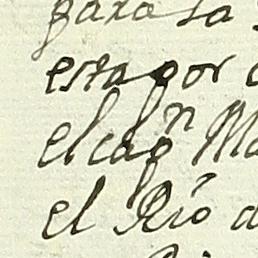 para la
estapor
el capn Ma
el Rio d